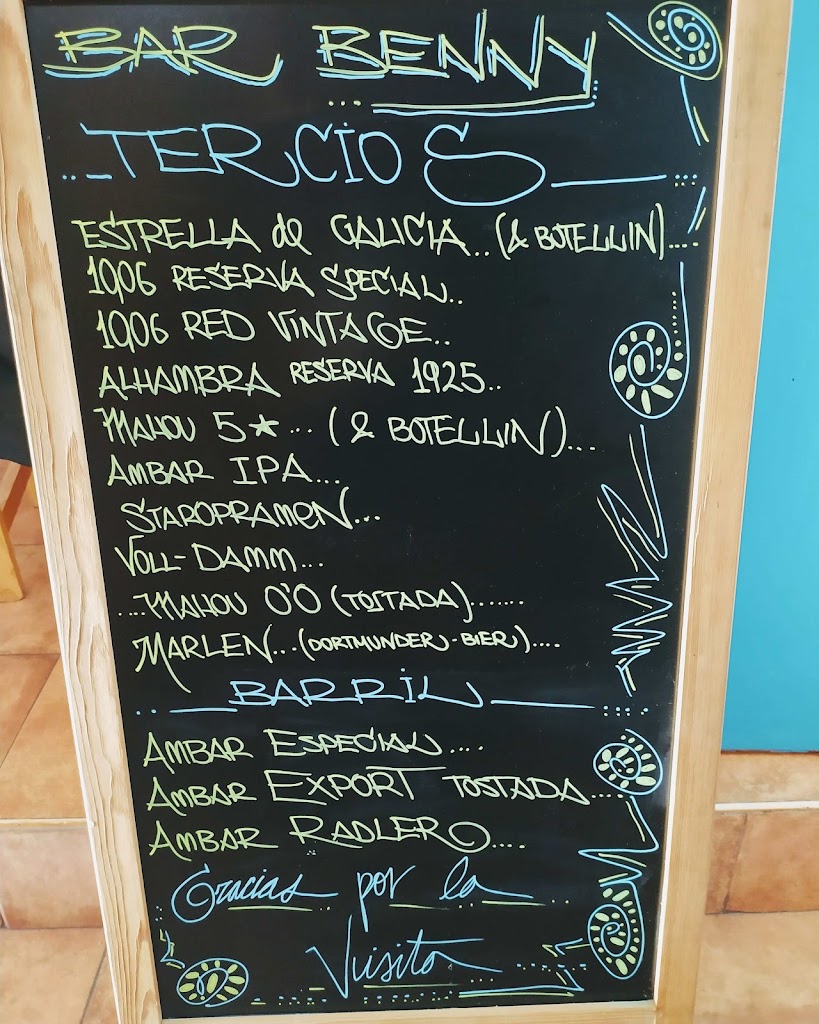 BAR BENNY
TERCIOS
ESTRELLA de GALICIA..(& BOTELLIN)....
1906 RESERVA SPECIAL..
1906 RED VINTAGE..
ALHAMBRA RESERVA 1925..
MAHOU 5★... (& BOTELLIN)...
AMBAR IPA...
STAROPRAMEN...
VOLL-DAMM...
...MAHOU 0'0 (TOSTADA).......
MARLEN...(DORTMUNDER-BIER)....
BARRIL
AMBAR ESPECIAL....
AMBAR EXPORT TOSTADA....
AMBAR RADLER....
Gracias por la
Visita